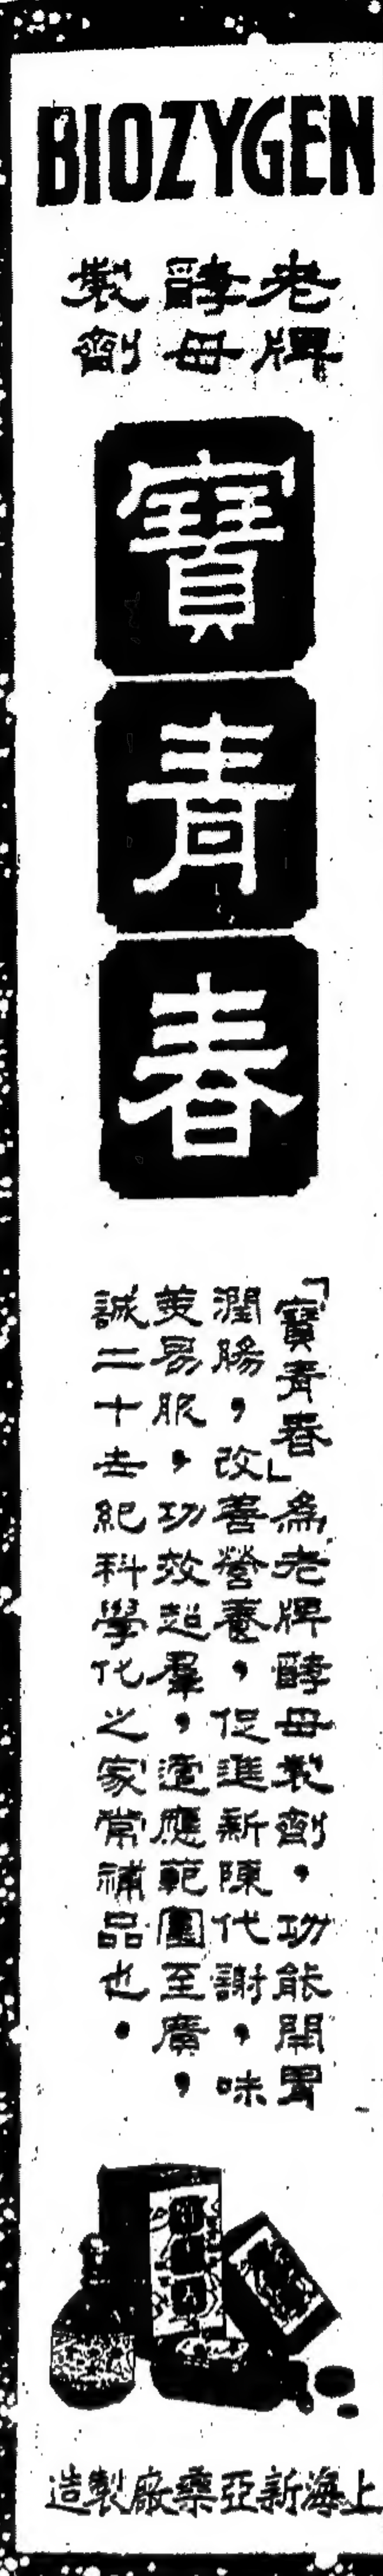 BIOZYGEN
老牌
酵母
製劑
寶青春
「寶青春」為老牌酵母製劑，功能開胃
潤腸，改善營養，促進新陳代謝，味
美易服，功效超羣，適應範圍至廣，
誠二十世紀科學化之家常補品也．
上海新亞藥廠製造